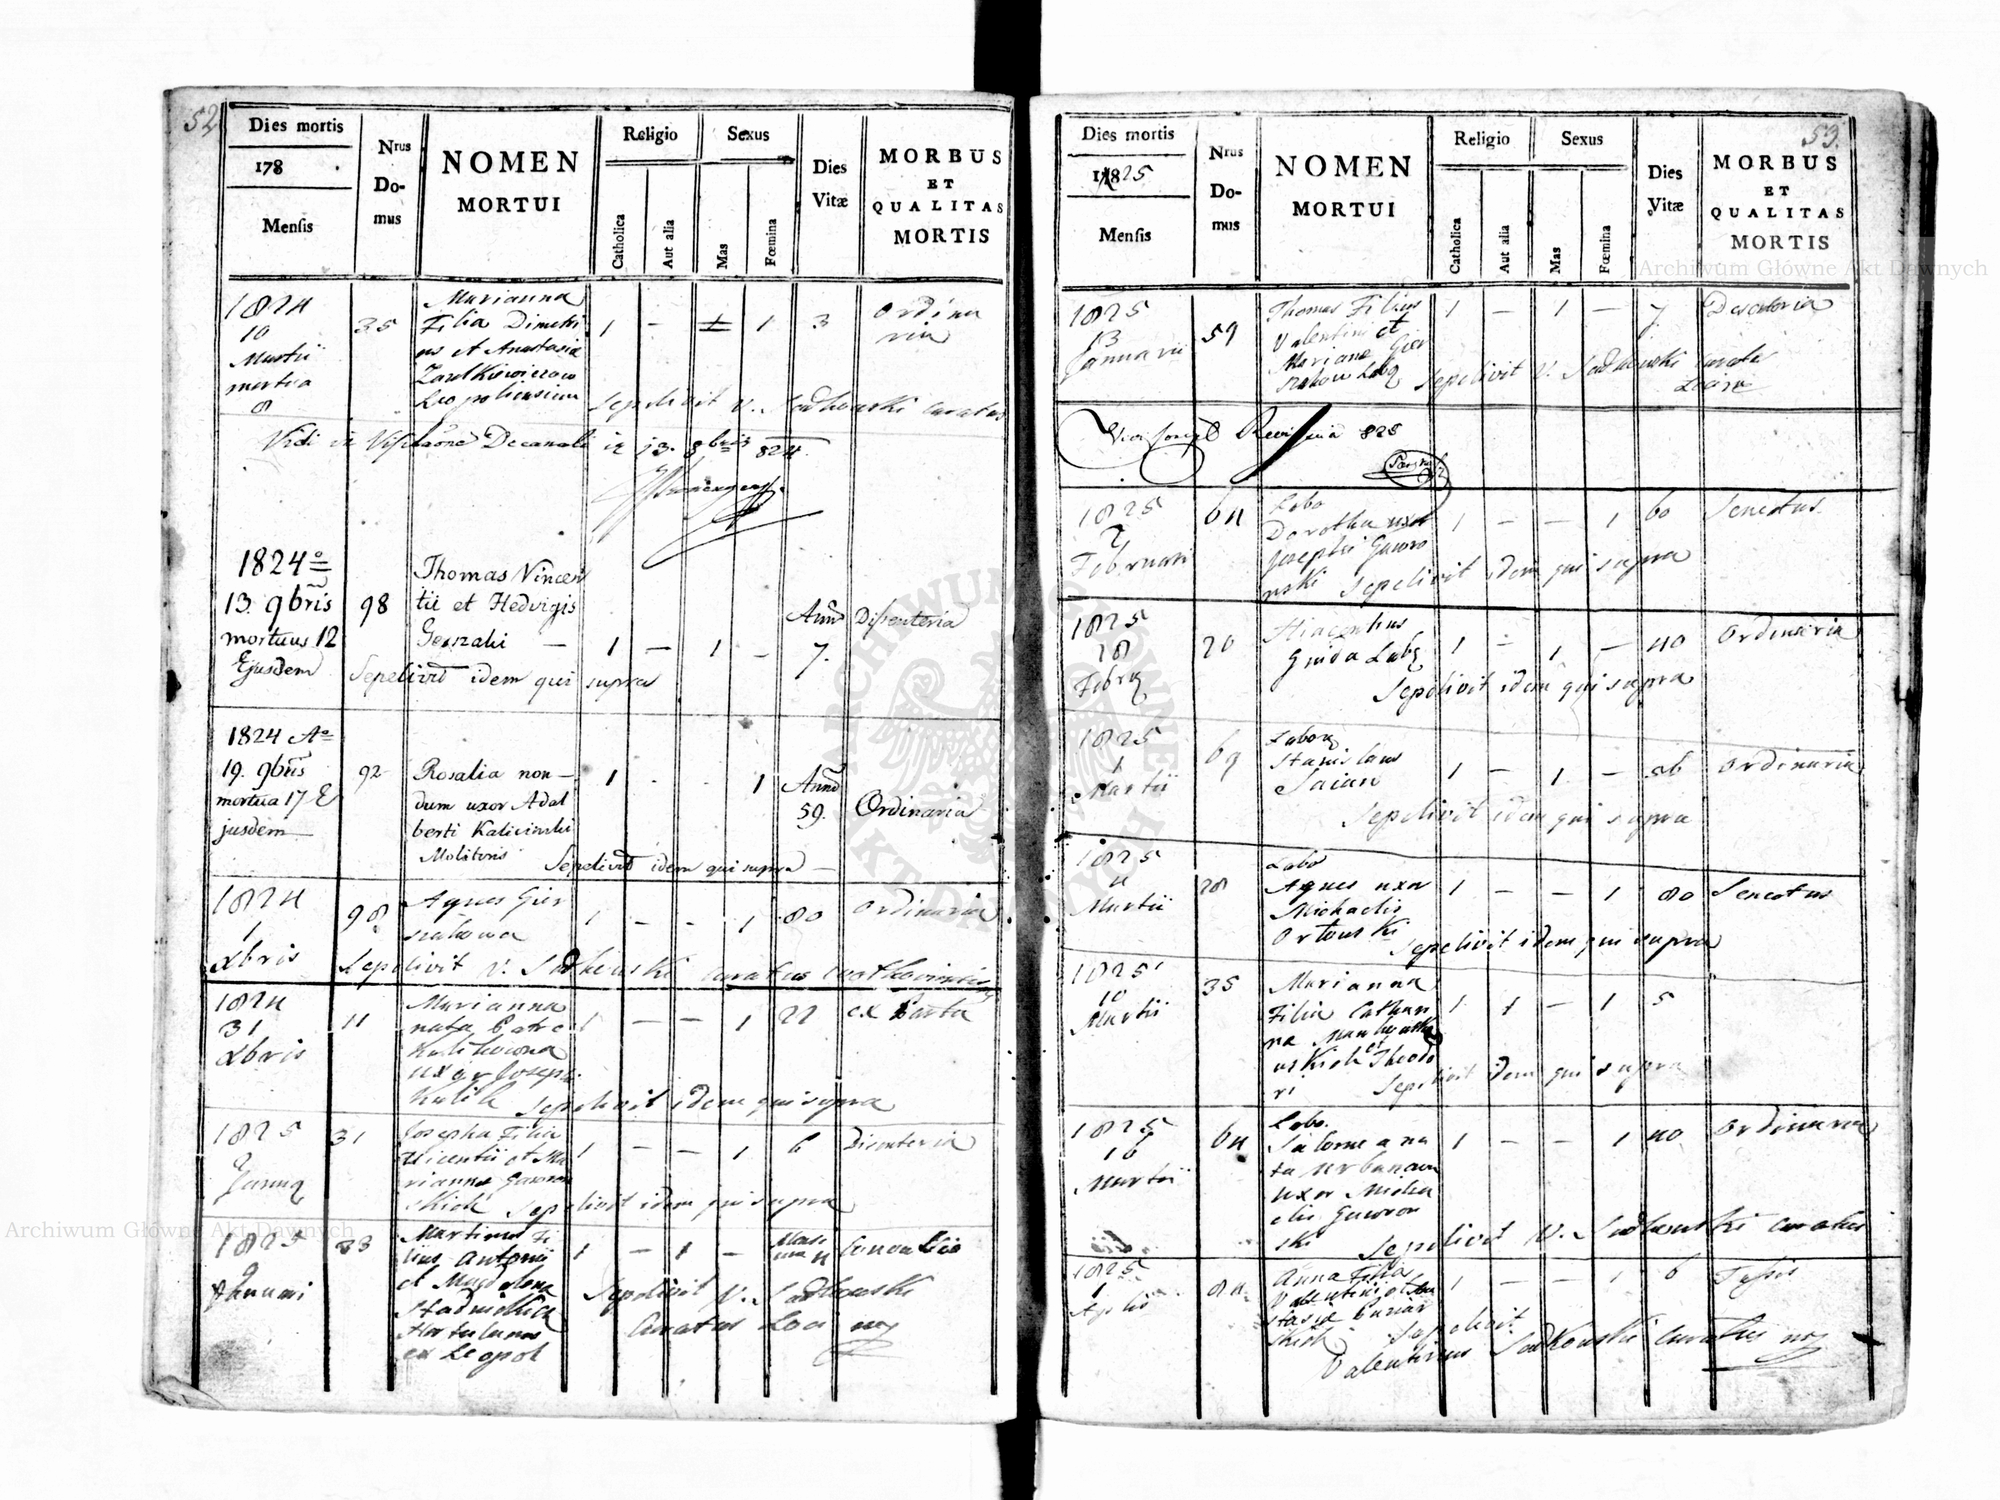 52
Dies mortis
178
Mensis
Nrus
Do-
mus
NOMEN
MORTUI
Religio
Catholica
Aut alia
Sexus
Mas
Fœmina
Dies
Vitæ
MORBUS
ET
QUALITAS
MORTIS
1824
10
Martii
mortua
8
35
Marianna
Filia Dimetri
us et Anastasia
Leopoliensium
1 – 1 3
Ordina
ria
Sepelivit V. Sadkowski Curatus
Vidi in Visitaone Decanali in 13. 8bris 824
1824o
13. 9bris
mortuus 12
Ejusdem
98
Thomas Vincen
tii et Hedvigis
1 – 1 –
Ann
7.
Dissenteria
Sepelivit idem qui supra
1824 Ao
19. 9bris
mortua 17 E
jusdem
92
Rosalia non–
dum uxor Adal
berti Kalicinski
Molitoris
1 - - 1
Ann
59.
Ordinaria
Sepelivit idem qui supra –
1824
1
Xbris
98
Agnes Gier
1 – - 1 80
Ordinaria
Sepelivit V. Sadkowski curatus
1824
31
Xbris
11
Marianna
nata Patre
uxor Josephi
Kulik
1 – – 1 22
ex Partu
Sepelivit idem qui supra
1825
2
Janua
31
Josepha Filia
Vicentii et Ma
rianna Gawron
skich
1 – – 1 6
Disenteria
Sepelivit idem qui supra
1825
8 Januari
33
Martinus Fi
lius Antonii
et Magdalena
Hortulanus
ex Leopol
1 – 1 –
Sepelivit V. Sadkowski
Curatus Loci
53.
Dies mortis
1825
Mensis
Nrus
Do-
mus
NOMEN
MORTUI
Religio
Catholica
Aut alia
Sexus
Mas
Fœmina
Dies
Vitæ
MORBUS
ET
QUALITAS
MORTIS
1825
13
Januarii
59
Thomas Filius
Valentini et
Mariana Gier
1 – 1 – 7
Sepelivit V. Sadkowski
825
1825
2
Februari
64
Labo
Dorothea uxor
Josephi Gawro
nski
1 – – 1 60
Senectus
Sepelivit idem qui supra
1825
28
Febr
20
Hiacenthus
Guida Labo
1 – 1 – 40
Ordinaria
Sepelivit idem qui supra
1825
1
Martii
69
Labor
Stanislaus
Saian
1 – 1 – 56
Ordinaria
Sepelivit idem qui supra
1825
4
Martii
28
Labo
Agnes uxor
Michaelis
Ortowski
1 – – 1 80
Senectus
Sepelivit idem qui supra
1825
10
Martii
35
Marianna
Filia Cathari
na
Theodo
ri
1 1 – 1 5
Sepelivit idem qui supra
1825
16
Martii
64
Labo.
Salomeana
ta Urbanown
uxor Micha
elis Gawron
ski
1 – – 1 40
Ordinaria
Sepelivit V. Sadkowski Curatus
1825
1
Aprilis
84
Anna Filia
Valentini et Ana
stasia
1 – – 1 6
Tussis
Sepelivit
Valentinus Sadkowski Curatus
Archiwum Główne Akt Dawnych
Archiwum Główne Akt Dawnych
ARCHIWUM GŁÓWNE AKT DAWNYCH